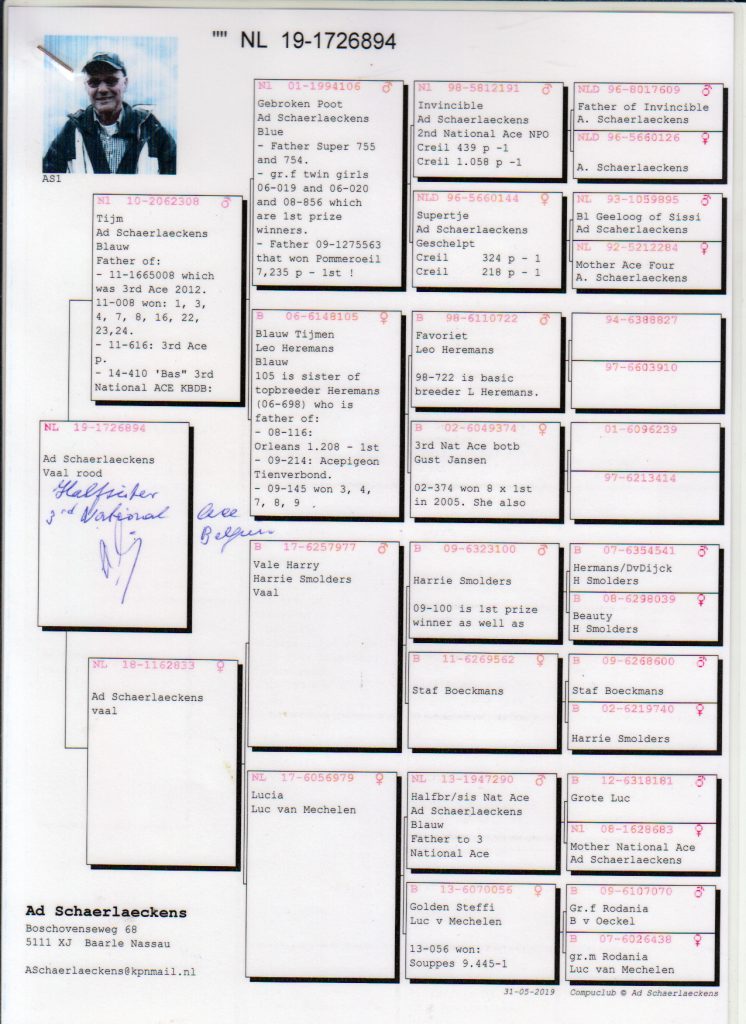 "" NL 19-1726894
AS1
Nl 10-2062308 ♂
Tijm
Ad Schaerlaeckens
Blauw
Father of:
- 11-1665008 which
was 3rd Ace 2012.
11-008 won: 1, 3,
4, 7, 8, 16, 22,
23,24.
- 11-616: 3rd Ace
p.
- 14-410 'Bas" 3rd
National ACE KBDB:
NL 19-1726894
Ad Schaerlaeckens
Vaal rood
3rd National
NL 18-1162833 ♀
Ad Schaerlaeckens
vaal
Nl 01-1994106 ♂
Gebroken Poot
Ad Schaerlaeckens
Blue
- Father Super 755
and 754.
- gr.f twin girls
06-019 and 06-020
and 08-856 which
are 1st prize
winners.
- Father 09-1275563
that won Pommeroeil
7,235 p - 1st !
B 06-6148105 ♀
Blauw Tijmen
Leo Heremans
Blauw
105 is sister of
topbreeder Heremans
(06-698) who is
father of:
- 08-116:
Orleans 1.208 - 1st
- 09-214: Acepigeon
Tienverbond.
- 09-145 won 3, 4,
7, 8, 9 .
B 17-6257977 ♂
Vale Harry
Harrie Smolders
Vaal
NL 17-6056979 ♀
Lucia
Luc van Mechelen
Nl 98-5812191 ♂
Invincible
Ad Schaerlaeckens
2nd National Ace NPO
Creil 439 p -1
Creil 1.058 p -1
NLD 96-5660144 ♀
Supertje
Ad Schaerlaeckens
Geschelpt
Creil 324 p - 1
Creil 218 p - 1
B 98-6110722 ♂
Favoriet
Leo Heremans
98-722 is basic
breeder L Heremans.
B 02-6049374 ♀
3rd Nat Ace botb
Gust Jansen
02-374 won 8 x 1st
in 2005. She also
B 09-6323100 ♂
Harrie Smolders
09-100 is 1st prize
winner as well as
B 11-6269562 ♀
Staf Boeckmans
NL 13-1947290 ♂
Halfbr/sis Nat Ace
Ad Schaerlaeckens
Blauw
Father to 3
National Ace
B 13-6070056 ♀
Golden Steffi
Luc v Mechelen
13-056 won:
Souppes 9.445-1
NLD 96-8017609 ♂
Father of Invincible
A. Schaerlaeckens
NLD 96-5660126 ♀
A. Schaerlaeckens
NL 93-1059895 ♂
Bl Geeloog of Sissi
Ad Scaherlaeckens
NL 92-5212284 ♀
Mother Ace Four
A. Schaerlaeckens
94-6388827
97-6603910
01-6096239
97-6213414
B 07-6354541 ♂
Hermans/DvDijck
H Smolders
B 08-6298039 ♀
Beauty
H Smolders
B 09-6268600 ♂
Staf Boeckmans
B 02-6219740 ♀
Harrie Smolders
B 12-6318181 ♂
Grote Luc
Nl 08-1628683 ♀
Mother National Ace
Ad Schaerlaeckens
B 09-6107070 ♂
Gr.f Rodania
B v Oeckel
B 07-6026438 ♀
gr.m Rodania
Luc van Mechelen
Ad Schaerlaeckens
Boschovenseweg 68
5111 XJ Baarle Nassau
ASchaerlaeckens@kpnmail.nl
31-05-2019 Compuclub © Ad Schaerlaeckens